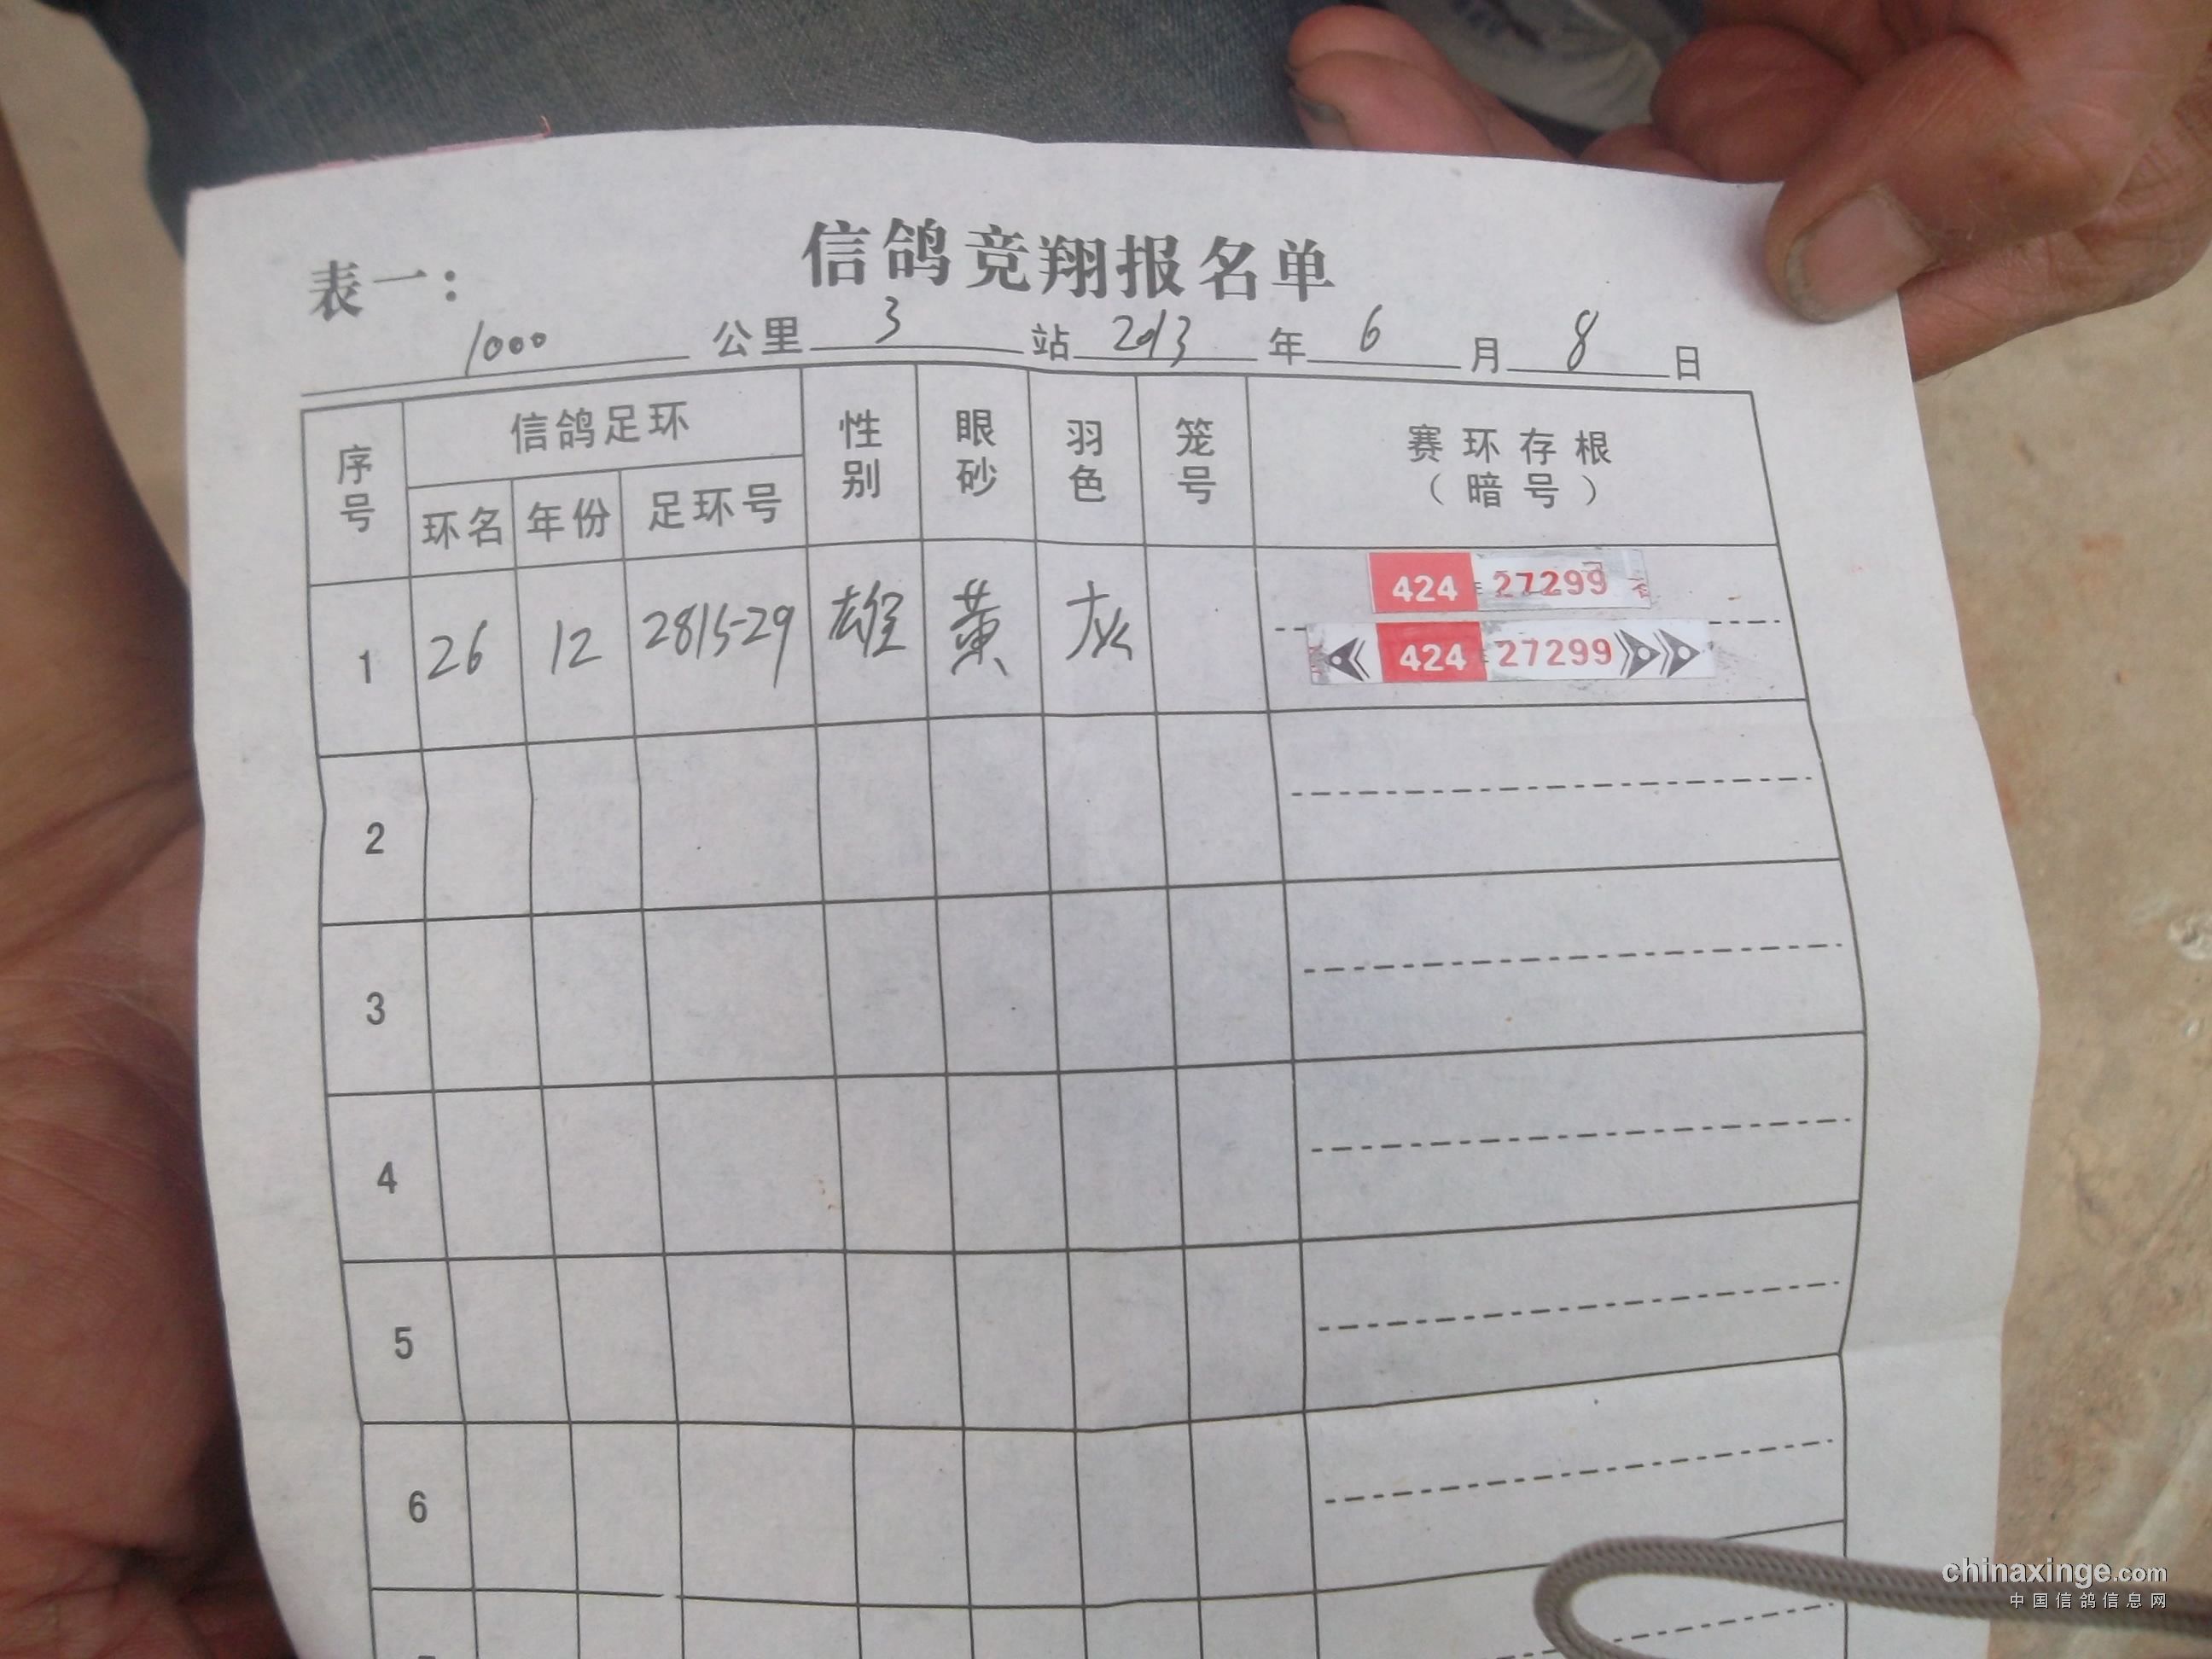 表一：
信鸽竞翔报名单
1000 公里 3 站 2013 年 6 月 8 日
序号 信鸽足环 性别 眼砂 羽色 笼号 赛环存根（暗号）
环名 年份 足环号
424 27299
1 26 12 2815-29 雄 黄 灰
424 27299
2
3
4
5
6
chinaxinge.com
中国信鸽信息网